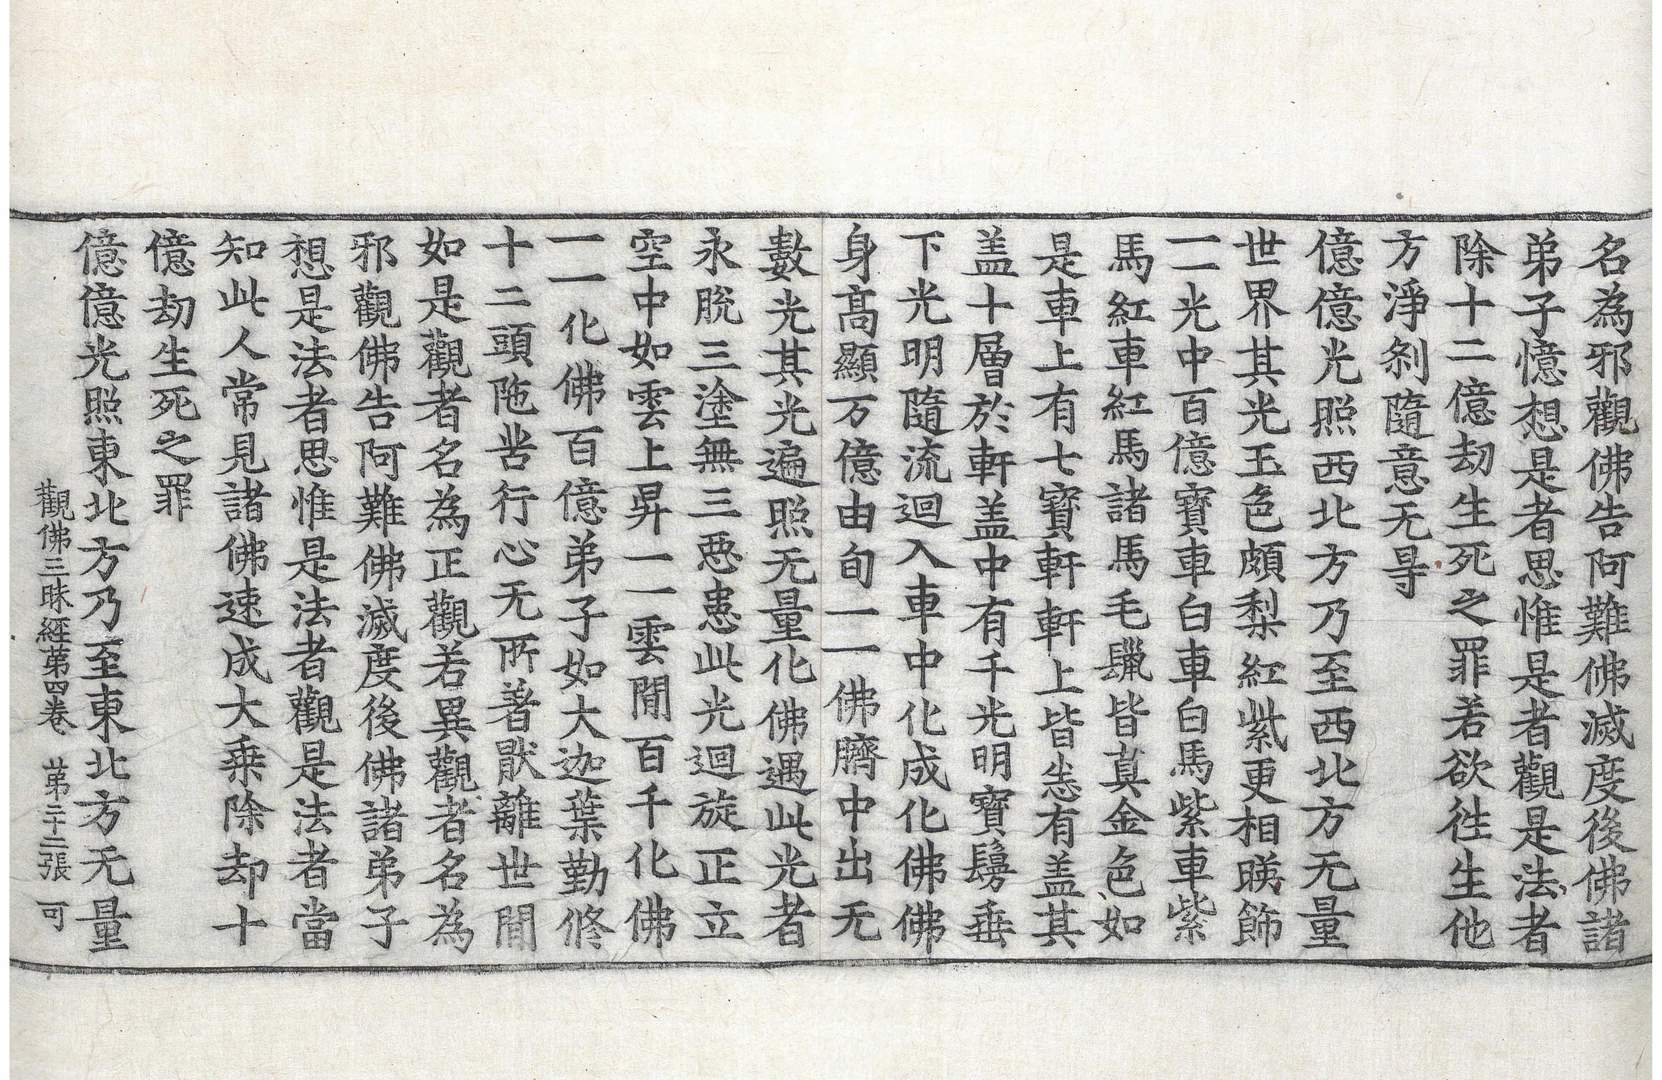 名為邪觀佛告阿難佛滅度後佛諸
弟子憶想是者思惟是者觀是法者
除十二億劫生死之罪若欲徃生他
方淨刹隨意无㝵
億億光照西北方乃至西北方无量
世界其光玉色頗梨紅紫更相暎飾
一一光中百億寶車白車白馬紫車紫
馬紅車紅馬諸馬毛鬣皆真金色如
是車上有七寶軒軒上皆悉有盖其
盖十層於軒盖中有千光明寶鬘垂
下光明隨流迴入車中化成化佛佛
身高顯万億由旬一一佛臍中出无
數光其光遍照无量化佛遇此光者
永脫三塗無三惡患此光迴旋正立
空中如雲上昇一一雲間百千化佛
一一化佛百億弟子如大迦葉勤修
十二頭陁苦行心无所著猒離世間
如是觀者名為正觀若異觀者名為
邪觀佛告阿難佛滅度後佛諸弟子
想是法者思惟是法者觀是法者當
知此人常見諸佛速成大乗除却十
億劫生死之罪
億億光照東北方乃至東北方无量
觀佛三昧經第四卷 第二十二張 可